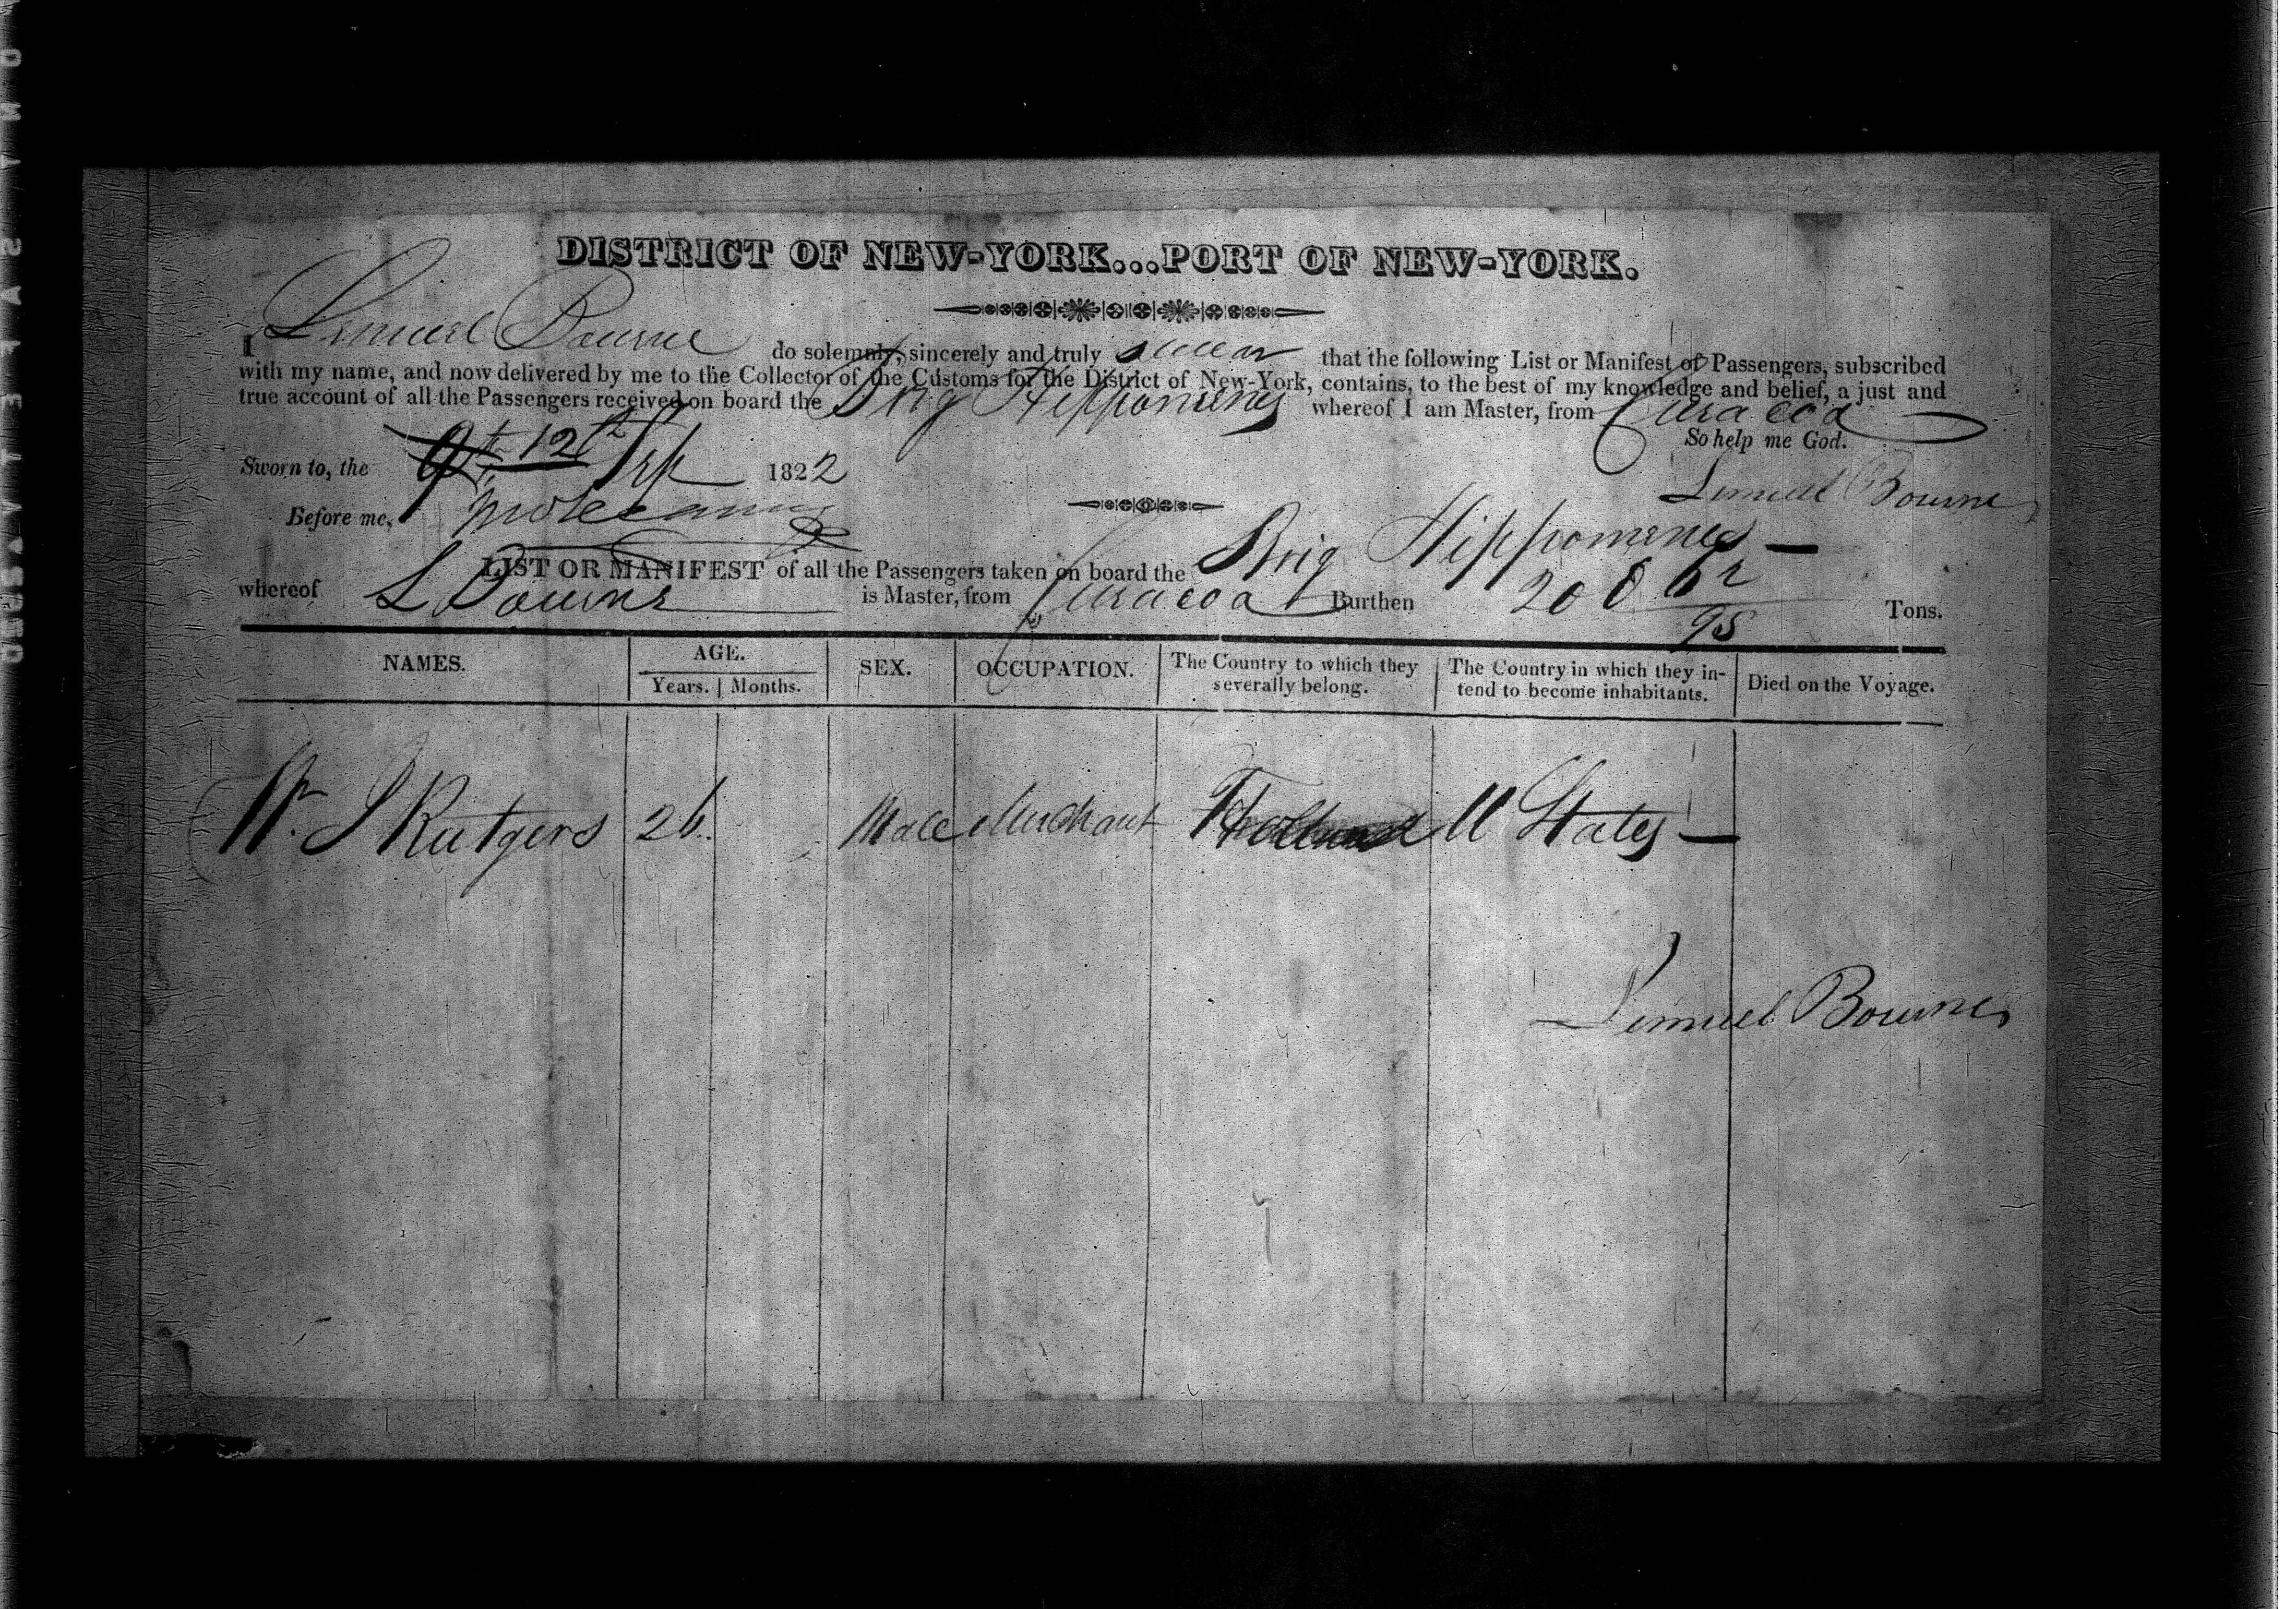 DISTRICT OF NEW-YORK...PORT OF NEW-YORK.
I Lemuel Bourne do solemnly, sincerely and truly swear that the following List or Manifest of Passengers, subscribed
with my name, and now delivered by me to the Collector of the Customs for the District of New-York, contains, to the best of my knowledge and belief, a just and
true account of all the Passengers received on board the Brig Hippomenes whereof I am Master, from Curacoa
So help me God.
Sworn to, the 12th Sep 1822
Lemuel Bourne
Before me,
LIST OR MANIFEST of all the Passengers taken on board the Brig Hippomenes
whereof L Bourne is Master, from Curacoa Burthen 200 62/95 Tons.
NAMES. AGE. SEX. OCCUPATION. The Country to which they severally belong. The Country in which they intend to become inhabitants. Died on the Voyage.
Years. Months.
Rutgers 26 Male Merchant Holland U States
Lemuel Bourne